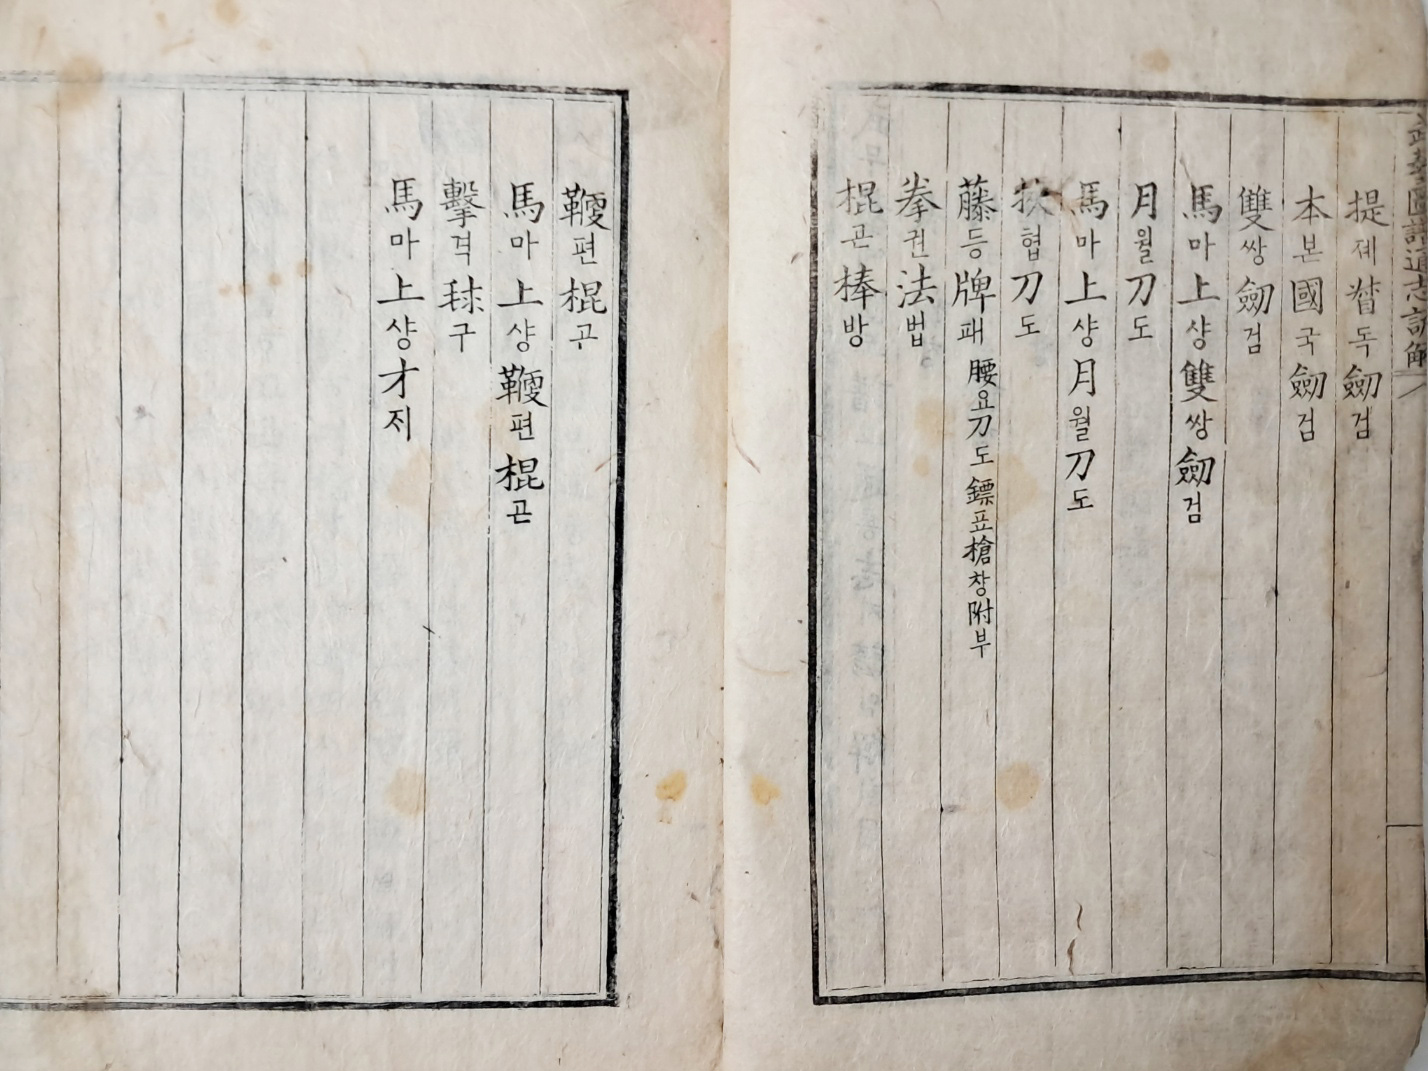 武藝圖譜通志諺解
提졔督독劒검
本본國국劒검
雙쌍劒검
馬마上샹雙쌍劒검
月월刀도
馬마上샹月월刀도
挾협刀도
藤등牌패 腰요刀도鏢표槍창附부
拳권法법
棍곤棒방
鞭편棍곤
馬마上샹鞭편棍곤
擊격毬구
馬마上샹才ᄌᆡ